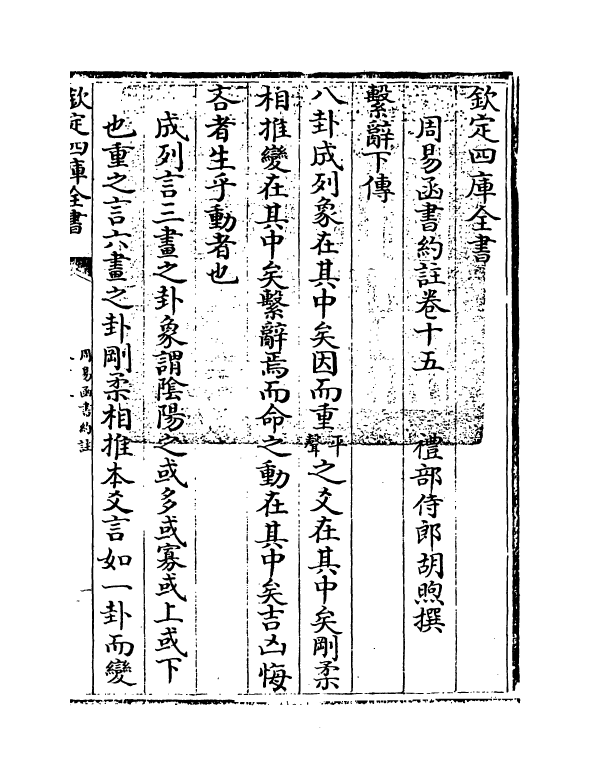 欽定四庫全書
周易函書約註卷十五　　禮部侍郎胡煦撰
繫辭下傳
八卦成列象在其中矣因而重平聲之爻在其中矣剛柔
相推變在其中矣繫辭焉而命之動在其中矣吉凶悔
吝者生乎動者也
成列言三畫之卦象謂陰陽之或多或寡或上或下
也重之言六畫之卦剛柔相推本爻言如一卦而變
欽定四庫全書
周易函書約註
一